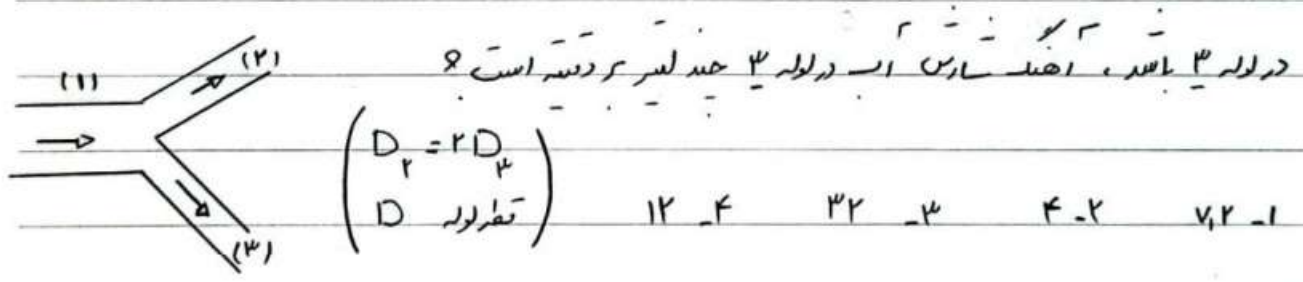 در لوله ۳ باشد ، آهنگ شارش آب در لوله ۳ چند لیتر بر دقیقه است ؟
(۱)
(۲)
(۳)
D۲ = ۲D۳
قطر لوله D
۱- ۷,۲ ۲- ۴ ۳- ۳۲ ۴- ۱۲